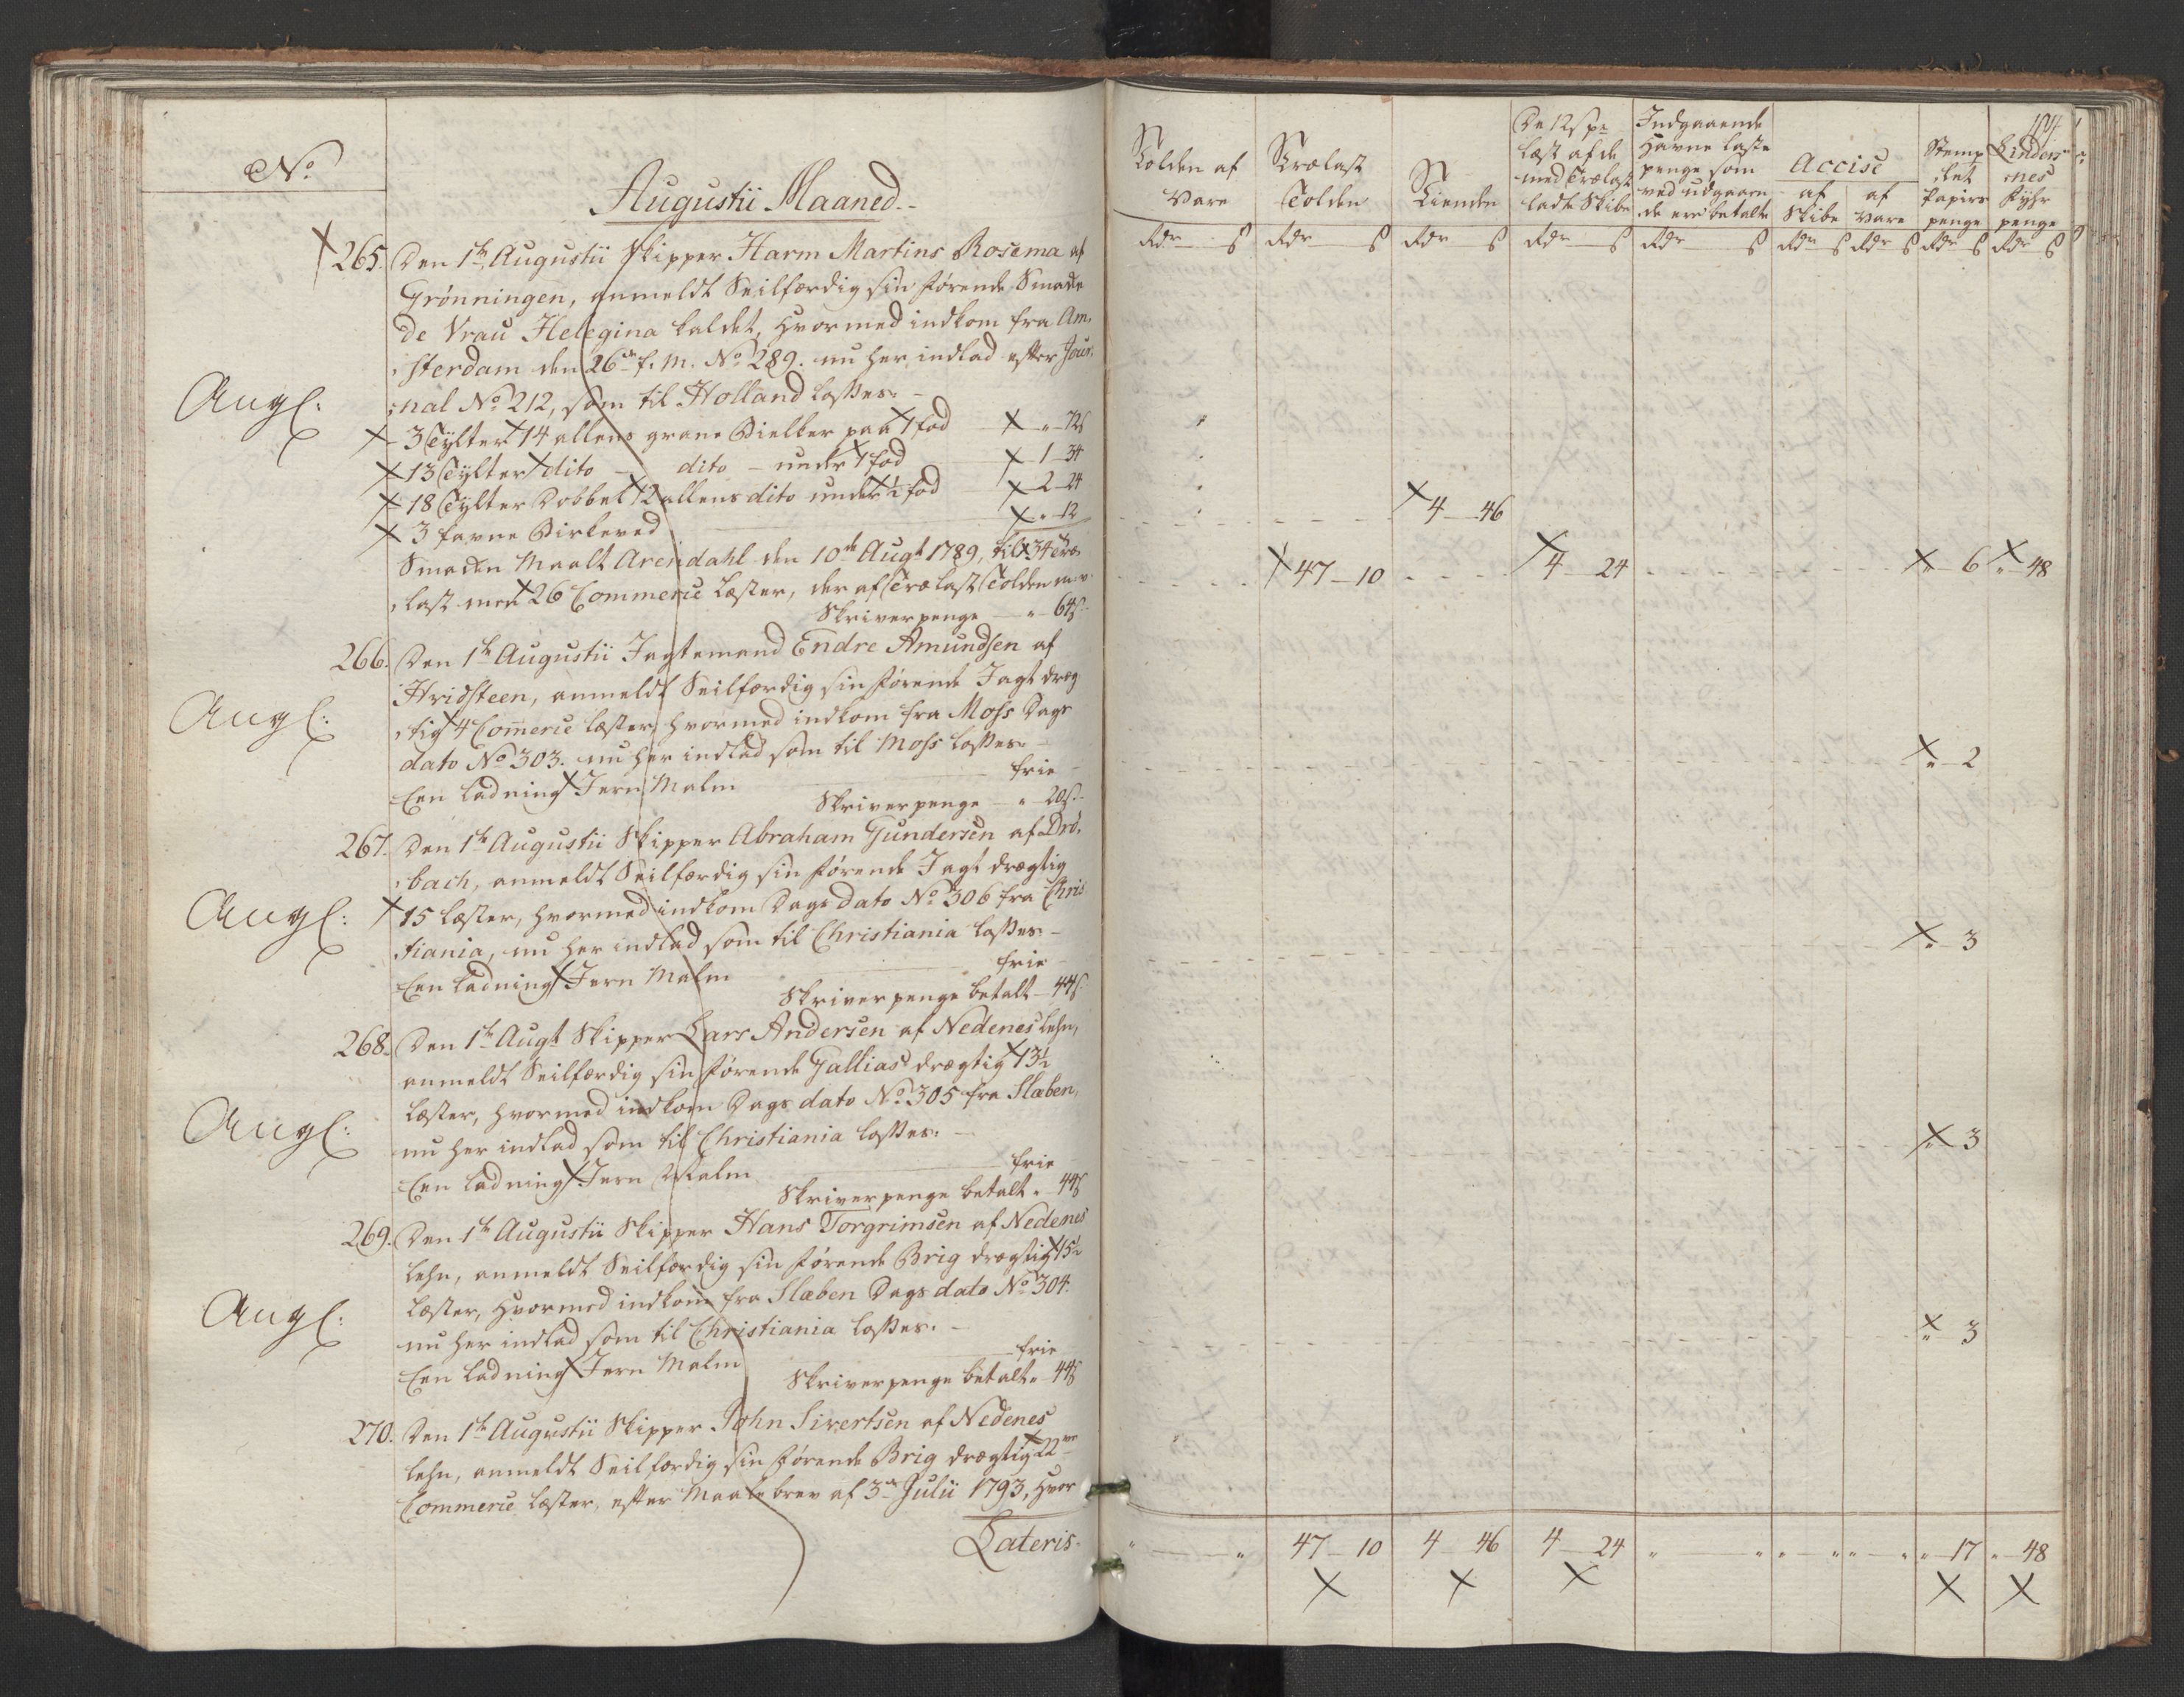 No.
Augustii Maaned.
265. Den 1te Augustii Skipper Harm Martins Rosema af
Grønningen, anmeldt Seilfærdig sin førende Smacke
de Vrau Helegina kaldet, hvormed indkom fra Am,
,sterdam den 26de f. M. No 289. nu her indlad efter Jour,
Angl:
,nal No 212, som til Holland losses.
3 Tylter 14 allens grane Bielker paa 1 fod " 72 ß
13 Tylter dito - dito - under 1 fod 1 - 34
18 Tylter Dobbel 12 allens dito under ½ fod 2 - 24
3 favne Birkeved " - 12
Smacken Maalt Arendahl den 10de Augt 1789, til 34 Træ,
,last med 26 Commerce Læster, der af Trælast Tolden m. v.
Skriverpenge " 64 ß
266. Den 1te Augustii Jagtemand Endre Amundsen af
Hvidsteen, anmeldt Seilfærdig sin førende Jagt dræg
Angl:
,tig 4 Comerce læster, hvormed indkom fra Moss Dags
dato No 303. nu her indlad som til Moss losses.
Een Ladning Jern Malm frie
Skriverpenge " 20 ß
267. Den 1te Augustii Skipper Abraham Gundersen af Drö,
,bach, anmeldt Seilfærdig sin førende Jagt drægtig
Angl:
15 læster, hvormed indkom Dags dato No 306 fra Chris
tiania, nu her indlad som til Christiania losses.
Een Ladning Jern Malm frie
Skriverpenge betalt 44 ß
268. Den 1te Augt Skipper Lars Andersen af Nedenes Lehn,
anmeldt Seilfærdig sin førende Gallias drægtig 13½
Læster, hvormed indkom Dags dato No 305 fra Slæben,
Angl:
nu her indlad som til Christiania losses.
Een Ladning Jern Malm frie
Skriverpenge betalt " 44 ß
269. Den 1te Augustii Skipper Hans Torgrimsen af Nedenes
Lehn, anmeldt Seilfærdig sin førende Brig drægtig 15½
Læster, hvormed indkom fra Slæben Dags dato No 304.
Angl:
nu her indlad som til Christiania losses.
Een Ladning Jern Malm frie
Skriverpenge betalt " 44 ß
270. Den 1te Augustii Skipper John Sivertsen af Nedenes
Lehn, anmeldt Seilfærdig sin førende Brig drægtig 22
Commerce Læster, efter Maalebrev af 3de Julii 1793, hvor
Lateris.
Tolden af Vare
Trælast Tolden
Tienden
De 12 ß pr Læst af de med Trælast ladte Skibe
Indgaaende Havne Laste penge som ved udgaaen ,de ere betalte
Accise
af Skibe
af Vare
Stemp ,let Papiirs penge
Lindes ,nes Fyhr penge
Rdr ß Rdr ß Rdr ß Rdr ß Rdr ß Rdr ß Rdr ß Rdr ß Rdr ß
4 - 46
47 - 10 4 - 24 " 6 " 48
" 2
" 3
" 3
" 3
" " 47 - 10 4 - 46 4 - 24 " " " " " " " 17 " 48